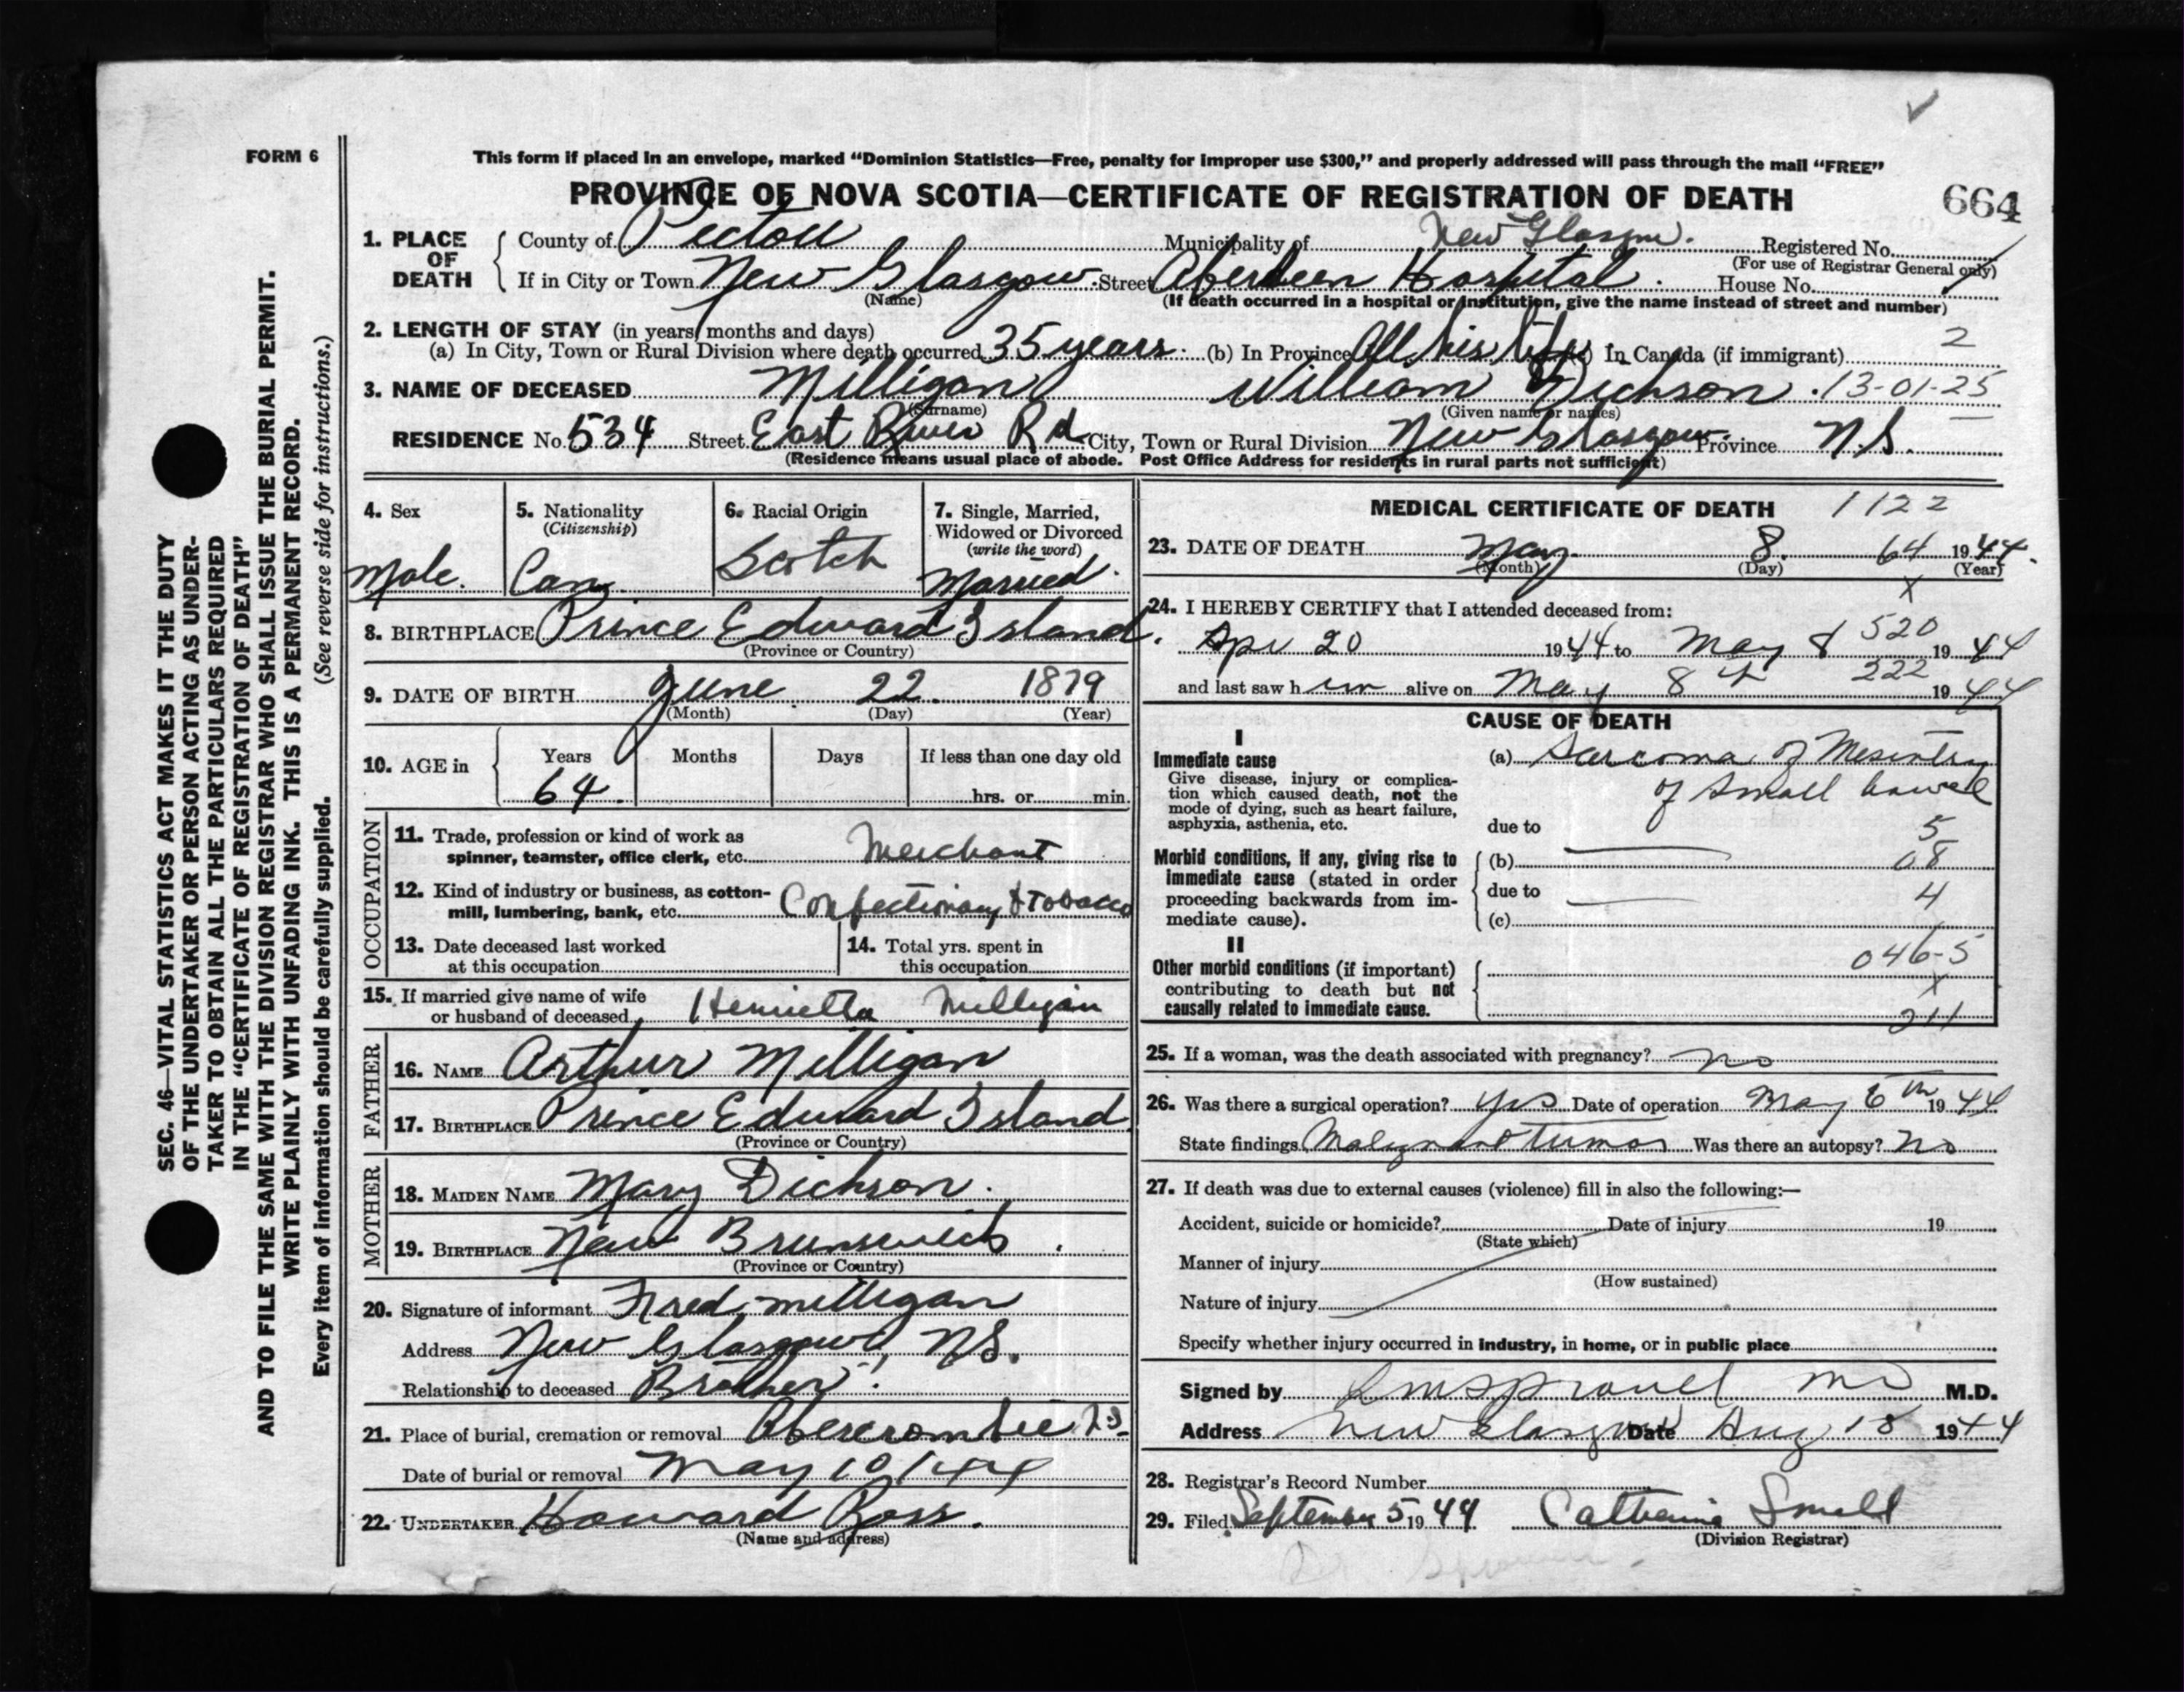 FORM 6
SEC. 46—VITAL STATISTICS ACT MAKES IT THE DUTY
OF THE UNDERTAKER OR PERSON ACTING AS UNDER-
TAKER TO OBTAIN ALL THE PARTICULARS REQUIRED
IN THE "CERTIFICATE OF REGISTRATION OF DEATH"
AND TO FILE THE SAME WITH THE DIVISION REGISTRAR WHO SHALL ISSUE THE BURIAL PERMIT.
WRITE PLAINLY WITH UNFADING INK. THIS IS A PERMANENT RECORD.
Every item of information should be carefully supplied. (See reverse side for instructions.)
This form if placed in an envelope, marked "Dominion Statistics—Free, penalty for improper use $300," and properly addressed will pass through the mail "FREE"
PROVINCE OF NOVA SCOTIA—CERTIFICATE OF REGISTRATION OF DEATH
664
1. PLACE OF DEATH
County of Pictou Municipality of New Glasgow. Registered No.
(For use of Registrar General only)
If in City or Town New Glasgow Street Aberdeen Hospital. House No.
(Name) (If death occurred in a hospital or institution, give the name instead of street and number)
2. LENGTH OF STAY (in years, months and days)
(a) In City, Town or Rural Division where death occurred 35 years. (b) In Province All his life In Canada (if immigrant) 2
3. NAME OF DECEASED Milligan William Dickson. 13-01-25
(Surname) (Given name or names)
RESIDENCE No. 534 Street East River Rd City, Town or Rural Division New Glasgow. Province N.S.
(Residence means usual place of abode. Post Office Address for residents in rural parts not sufficient)
4. Sex
Male.
5. Nationality
(Citizenship)
Can.
6. Racial Origin
Scotch
7. Single, Married,
Widowed or Divorced
(write the word)
Married.
8. BIRTHPLACE Prince Edward Island.
(Province or Country)
9. DATE OF BIRTH June 22. 1879
(Month) (Day) (Year)
10. AGE in Years Months Days If less than one day old
64. hrs. or min.
OCCUPATION
11. Trade, profession or kind of work as
spinner, teamster, office clerk, etc. Merchant
12. Kind of industry or business, as cotton-
mill, lumbering, bank, etc. Confectionary & Tobacco
13. Date deceased last worked
at this occupation
14. Total yrs. spent in
this occupation
15. If married give name of wife
or husband of deceased Henrietta Milligan
FATHER
16. NAME Arthur Milligan
17. BIRTHPLACE Prince Edward Island
(Province or Country)
MOTHER
18. MAIDEN NAME Mary Dickson.
19. BIRTHPLACE New Brunswick.
(Province or Country)
20. Signature of informant Fred Milligan
Address New Glasgow, N.S.
Relationship to deceased Brother.
21. Place of burial, cremation or removal Abercrombie N.S.
Date of burial or removal May 10/44
22. UNDERTAKER Howard Ross.
(Name and address)
MEDICAL CERTIFICATE OF DEATH 1122
23. DATE OF DEATH May 8. 64 1944.
(Month) (Day) (Year)
X
24. I HEREBY CERTIFY that I attended deceased from:
Apr 20 1944 to May 8 520 1944
and last saw him alive on May 8th 222 1944
CAUSE OF DEATH
I
Immediate cause
Give disease, injury or complica-
tion which caused death, not the
mode of dying, such as heart failure,
asphyxia, asthenia, etc.
(a) Sarcoma of Mesentery
of small bowel
due to 5
Morbid conditions, if any, giving rise to
immediate cause (stated in order
proceeding backwards from im-
mediate cause).
(b) 08
due to 4
(c)
II
Other morbid conditions (if important)
contributing to death but not
causally related to immediate cause.
046-5
X
211
25. If a woman, was the death associated with pregnancy? no
26. Was there a surgical operation? yes Date of operation May 6th 1944
State findings Malignant tumor Was there an autopsy? no
27. If death was due to external causes (violence) fill in also the following:—
Accident, suicide or homicide? Date of injury 19
(State which)
Manner of injury
(How sustained)
Nature of injury
Specify whether injury occurred in industry, in home, or in public place
Signed by Sproull MD M.D.
Address New Glasgow Date Aug 18 1944
28. Registrar's Record Number
29. Filed September 5 1944 Catherine Small
(Division Registrar)